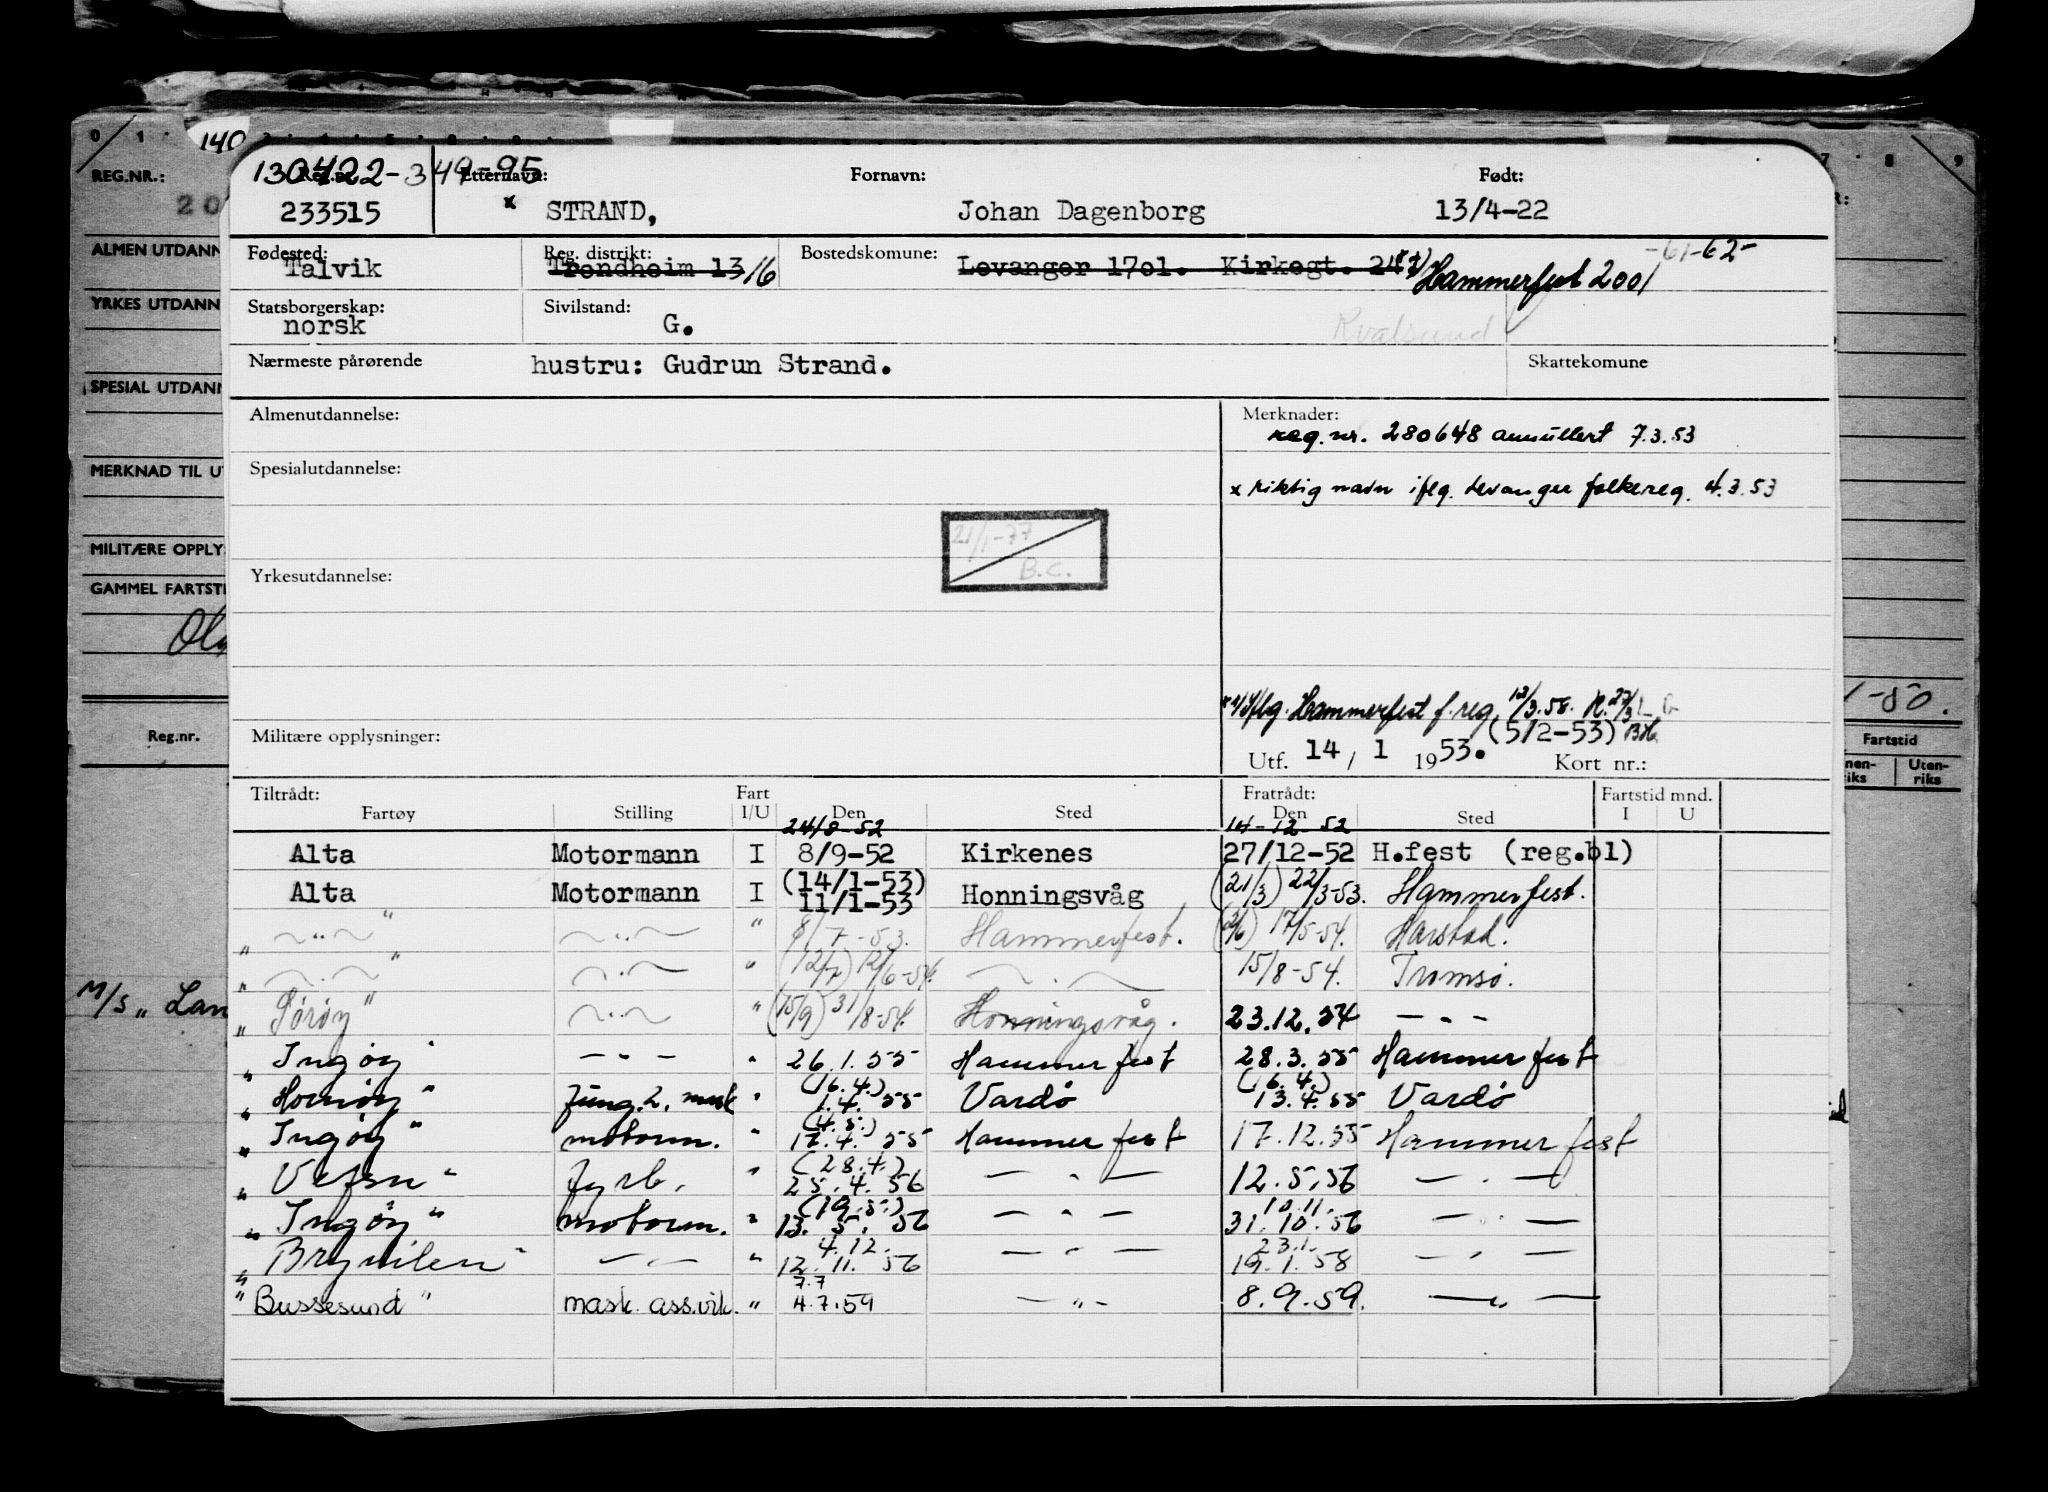 140
REG.NR.:
20
ALMEN UTDANN
YRKES UTDANN
SPESIAL UTDANN
MERKNAD TIL U
MILITÆRE OPPLY
GAMMEL FARTSTI
Reg.nr.
M/S „ Lan
130422-349-95
Etternavn: Fornavn: Født:
233515 x STRAND, Johan Dagenborg 13/4-22
Fødested: Reg. distrikt: Bostedskomune: -61-62-
Talvik Trondheim 13/6 Levanger 1701. Kirkegt. 24 Hammerfest 2001
Statsborgerskap: Sivilstand:
norsk G. Kvalsund
Nærmeste pårørende hustru: Gudrun Strand. Skattekomune
Almenutdannelse: Merknader:
reg. nr. 280648 annullert 7.3.53
Spesialutdannelse:
x riktig navn iflg. Levanger folkereg. 4.3.53
21/1-77
B.C.
Yrkesutdannelse:
Hammerfest f.reg. 12/3.58.
(5/2-53)
Militære opplysninger: Utf. 14 / 1 1953. Kort nr.:
Tiltrådt: Fart Fratrådt: Fartstid mnd.
Fartøy Stilling I/U Den Sted Den Sted I U
24/8-52 14-12-52
Alta Motormann I 8/9-52 Kirkenes 27/12-52 H.fest (reg.bl)
Alta Motormann I (14/1-53) 11/1-53 Honningsvåg (21/3) 22/3-53. Hammerfest.
„ —„— " —„— " 8/7-53. Hammerfest. 17/5-54. Harstad.
„ —„— " —„— " 12/6-54. —„— 15/8-54. Tromsø.
„ Sørøy" —„— " (15/9) 31/8-54. Honningsvåg. 23.12.54 —„—
„ Ingøy" —„— " 26.1.55 Hammerfest 28.3.55 Hammerfest
„ Hornøy" Jung. 2. mask " (16.4.) 1.4.55 Vardø (16.4.) 13.4.55 Vardø
„ Ingøy" motorm. " (4.5.) 17.4.55 Hammerfest 17.12.55 Hammerfest
„ Vefsn" fyrb. " (28.4.) 25.4.56 —„— 12.5.56 —„—
„ Ingøy" motorm. " (19.5.) 13.5.56 —„— 10.11. 31.10.56 —„—
„ Brynilen" —„— " 4.12. 12.11.56 —„— 23.1. 19.1.58 —„—
" Bussesund" mask. ass.vik. " 7.7 4.7.59 —„— 8.9.59. —„—
7 8 9
-50.
Fartstid
nen-
iks
Uten-
riks